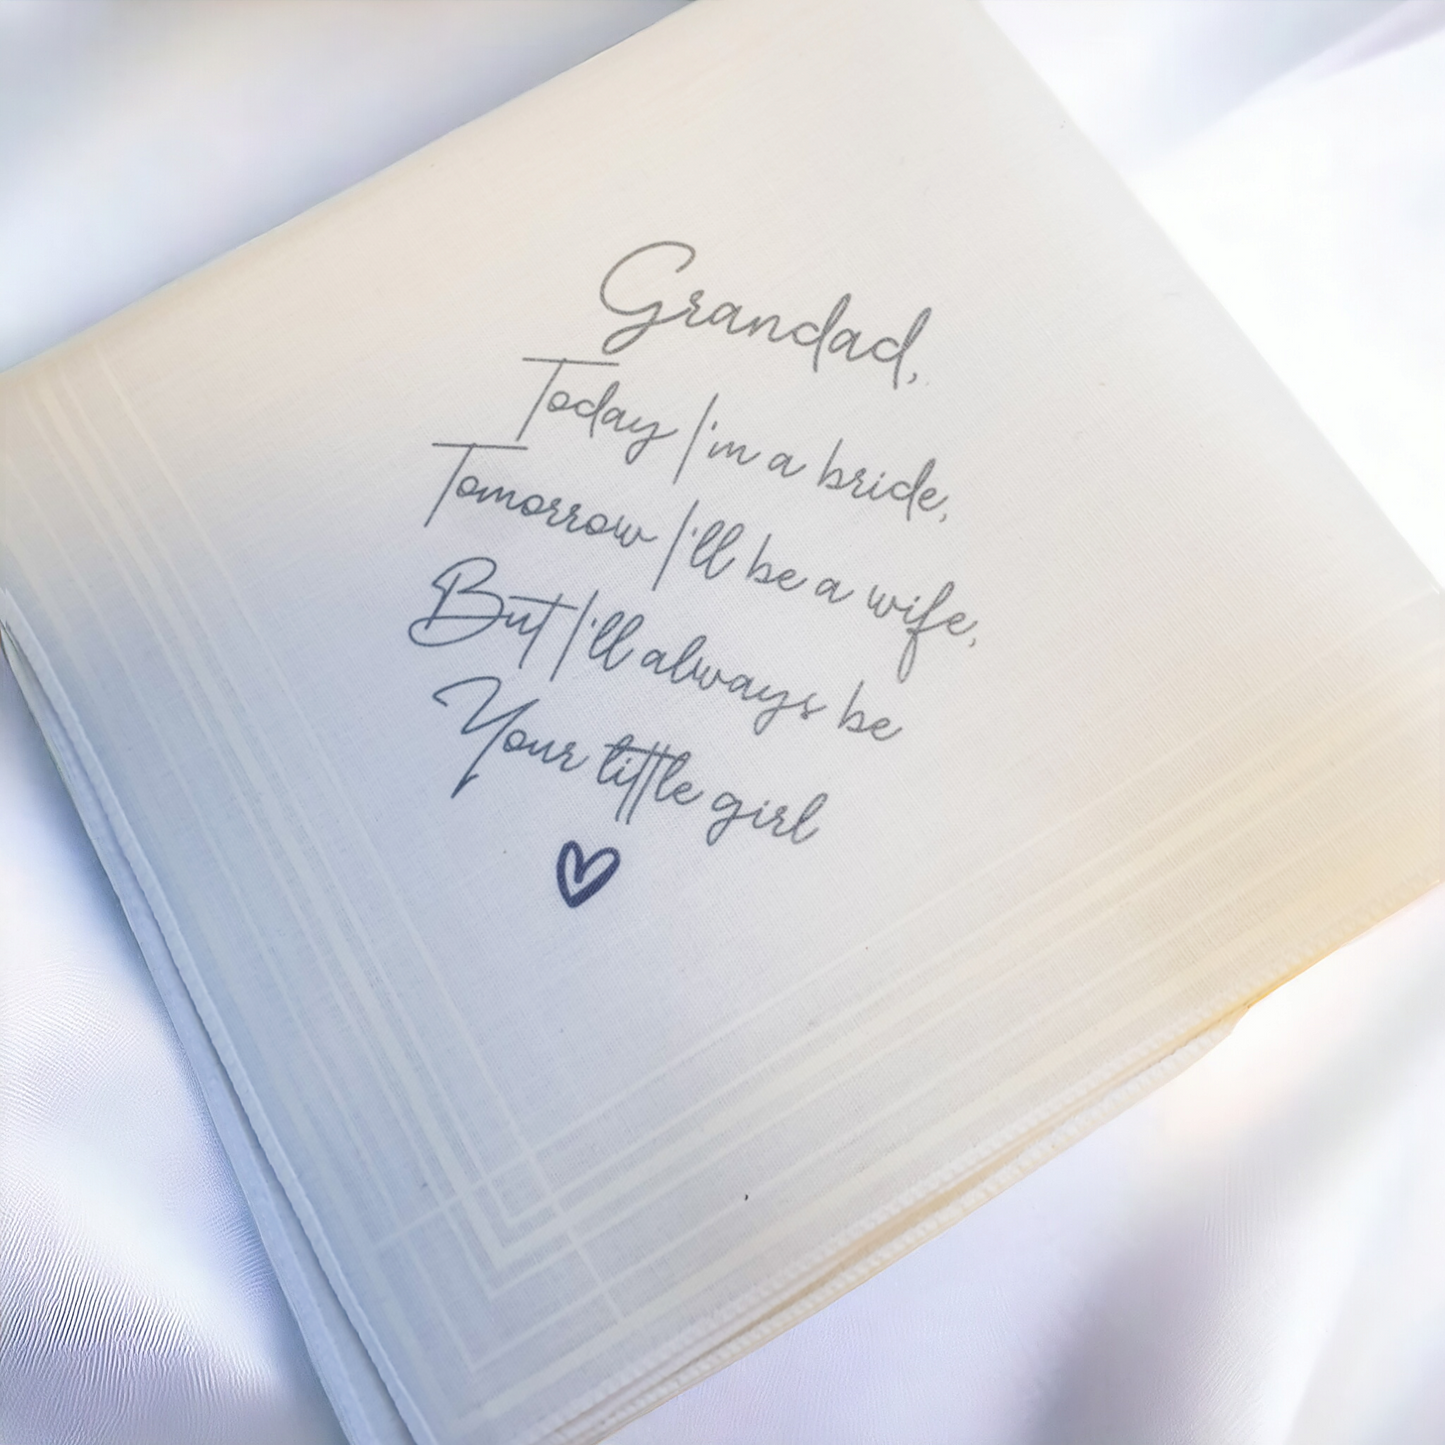 Grandad,
Today I'm a bride,
Tomorrow I'll be a wife,
But I'll always be
Your little girl